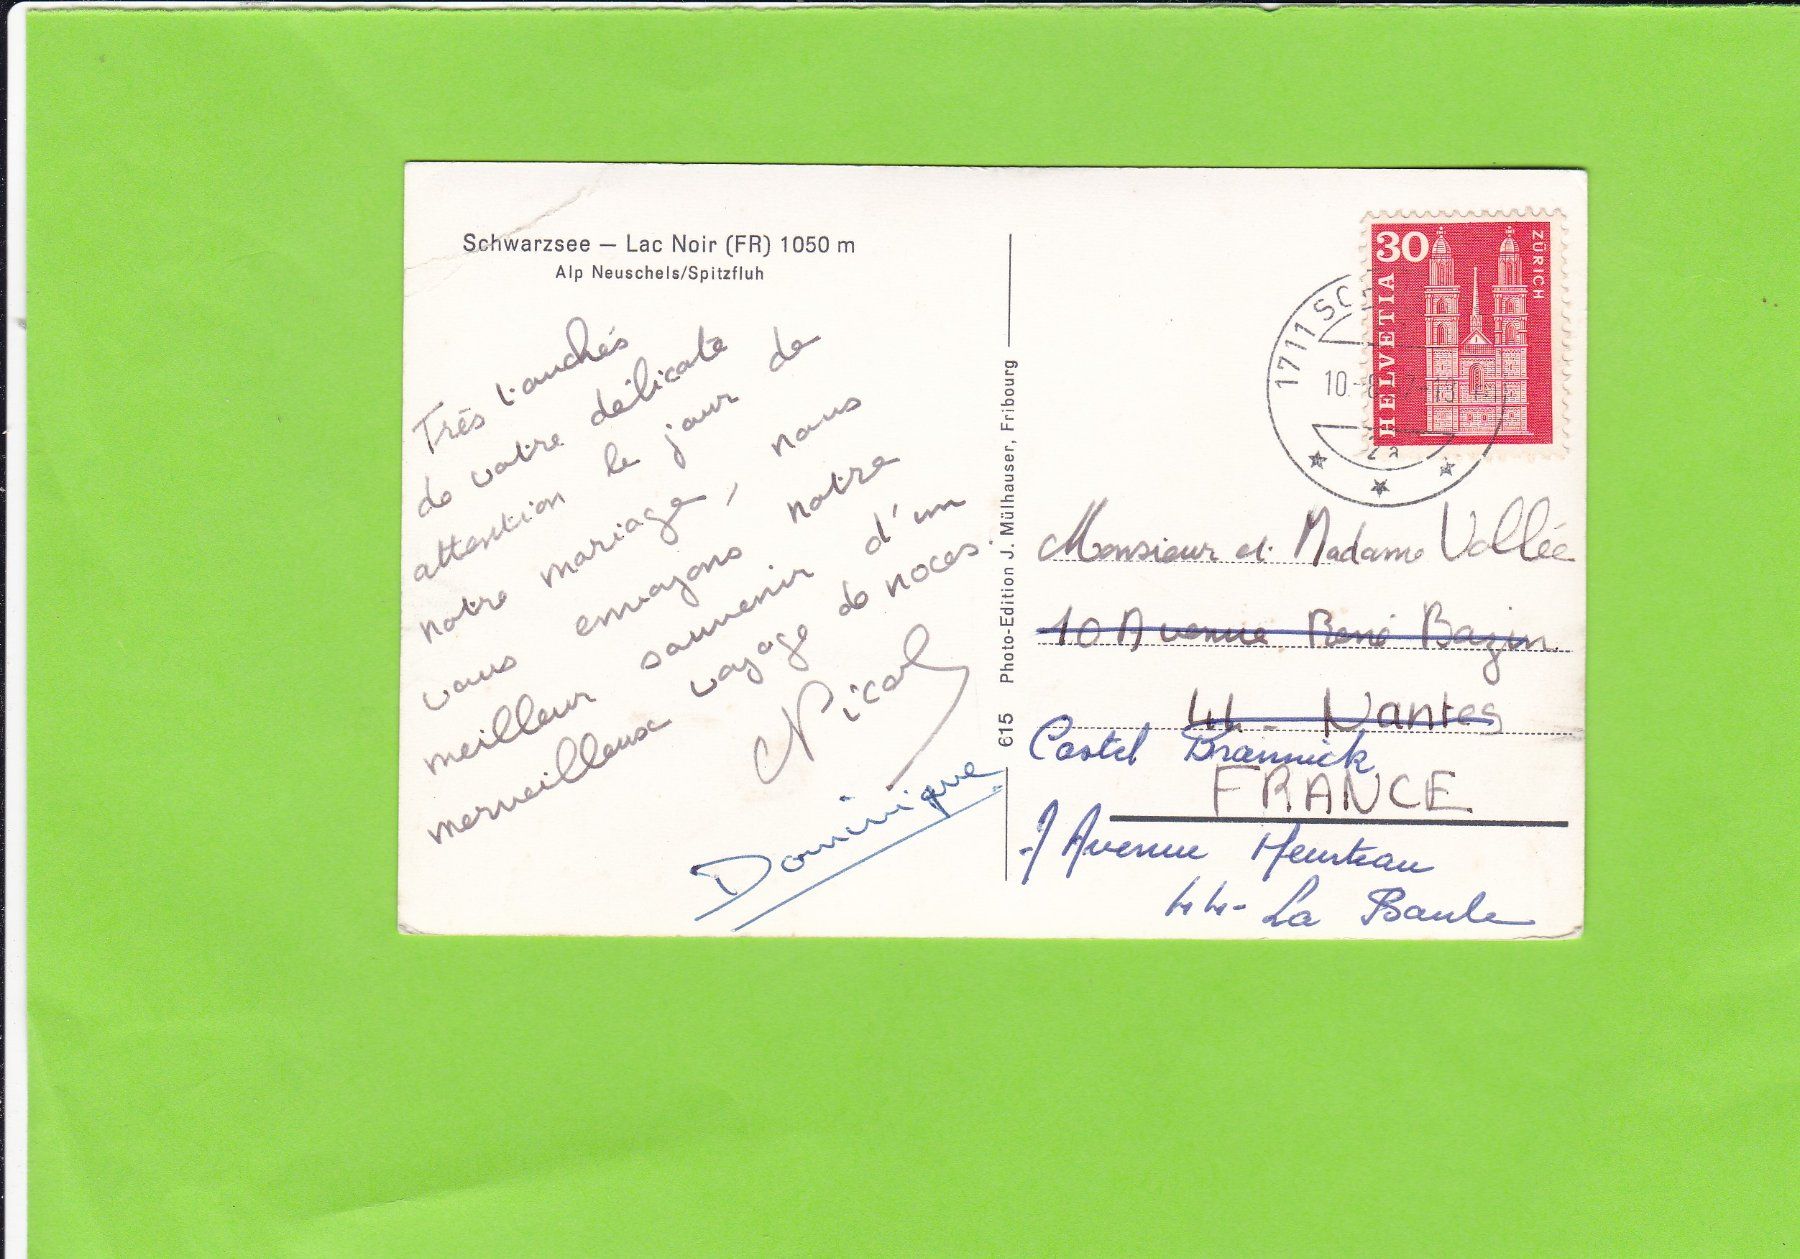 Schwarzsee — Lac Noir (FR) 1050 m
Alp Neuschels/Spitzfluh
Très touchés
de votre délicate
attention le jour de
notre mariage, nous
vous envoyons notre
meilleur souvenir d'un
merveilleux voyage de noces.
Nicole
Dominique
615 Photo-Edition J. Mülhauser, Fribourg
30
HELVETIA
ZÜRICH
1711 SC
10.-8
Monsieur et Madame Vallée
10 Avenue René Bazin
44 - Nantes
Castel Brannick
FRANCE
7 Avenue Heurteau
44- La Baule